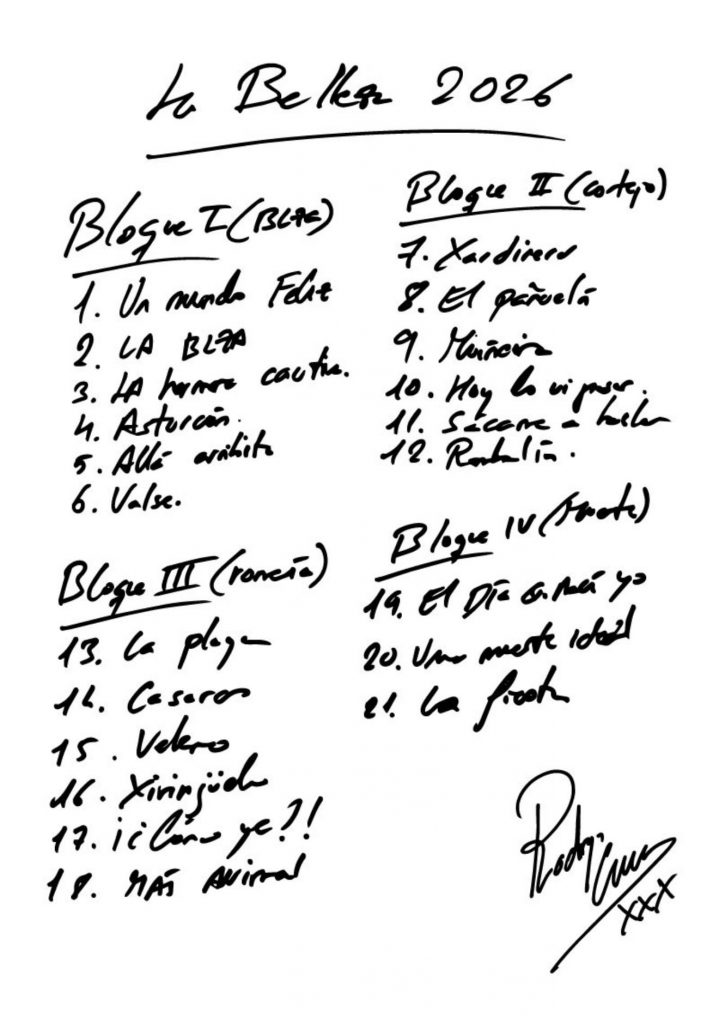 La Belleza 2026
Bloque I (BLZA)
1. Un mundo Feliz
2. LA BLZA
3. LA hermosa cautiva.
4. Asturcón.
5. Allá arribita
6. Valse.
Bloque II (cortejo)
7. Xardineru
8. El pañuelín
9. Muñeira
10. Hoy lo vi pasar.
11. Sácame a bailar
12. Rambalín.
Bloque III (romería)
13. La playa
14. Casaron
15. Velero
16. Xiringüelu
17. ¡¿Cómo ye?!
18. MÁS ANIMAL
Bloque IV (Muerte)
19. El Día q. nací yo
20. Una muerte ideal
21. La fiesta
Rodrigo Cuevas
XXX